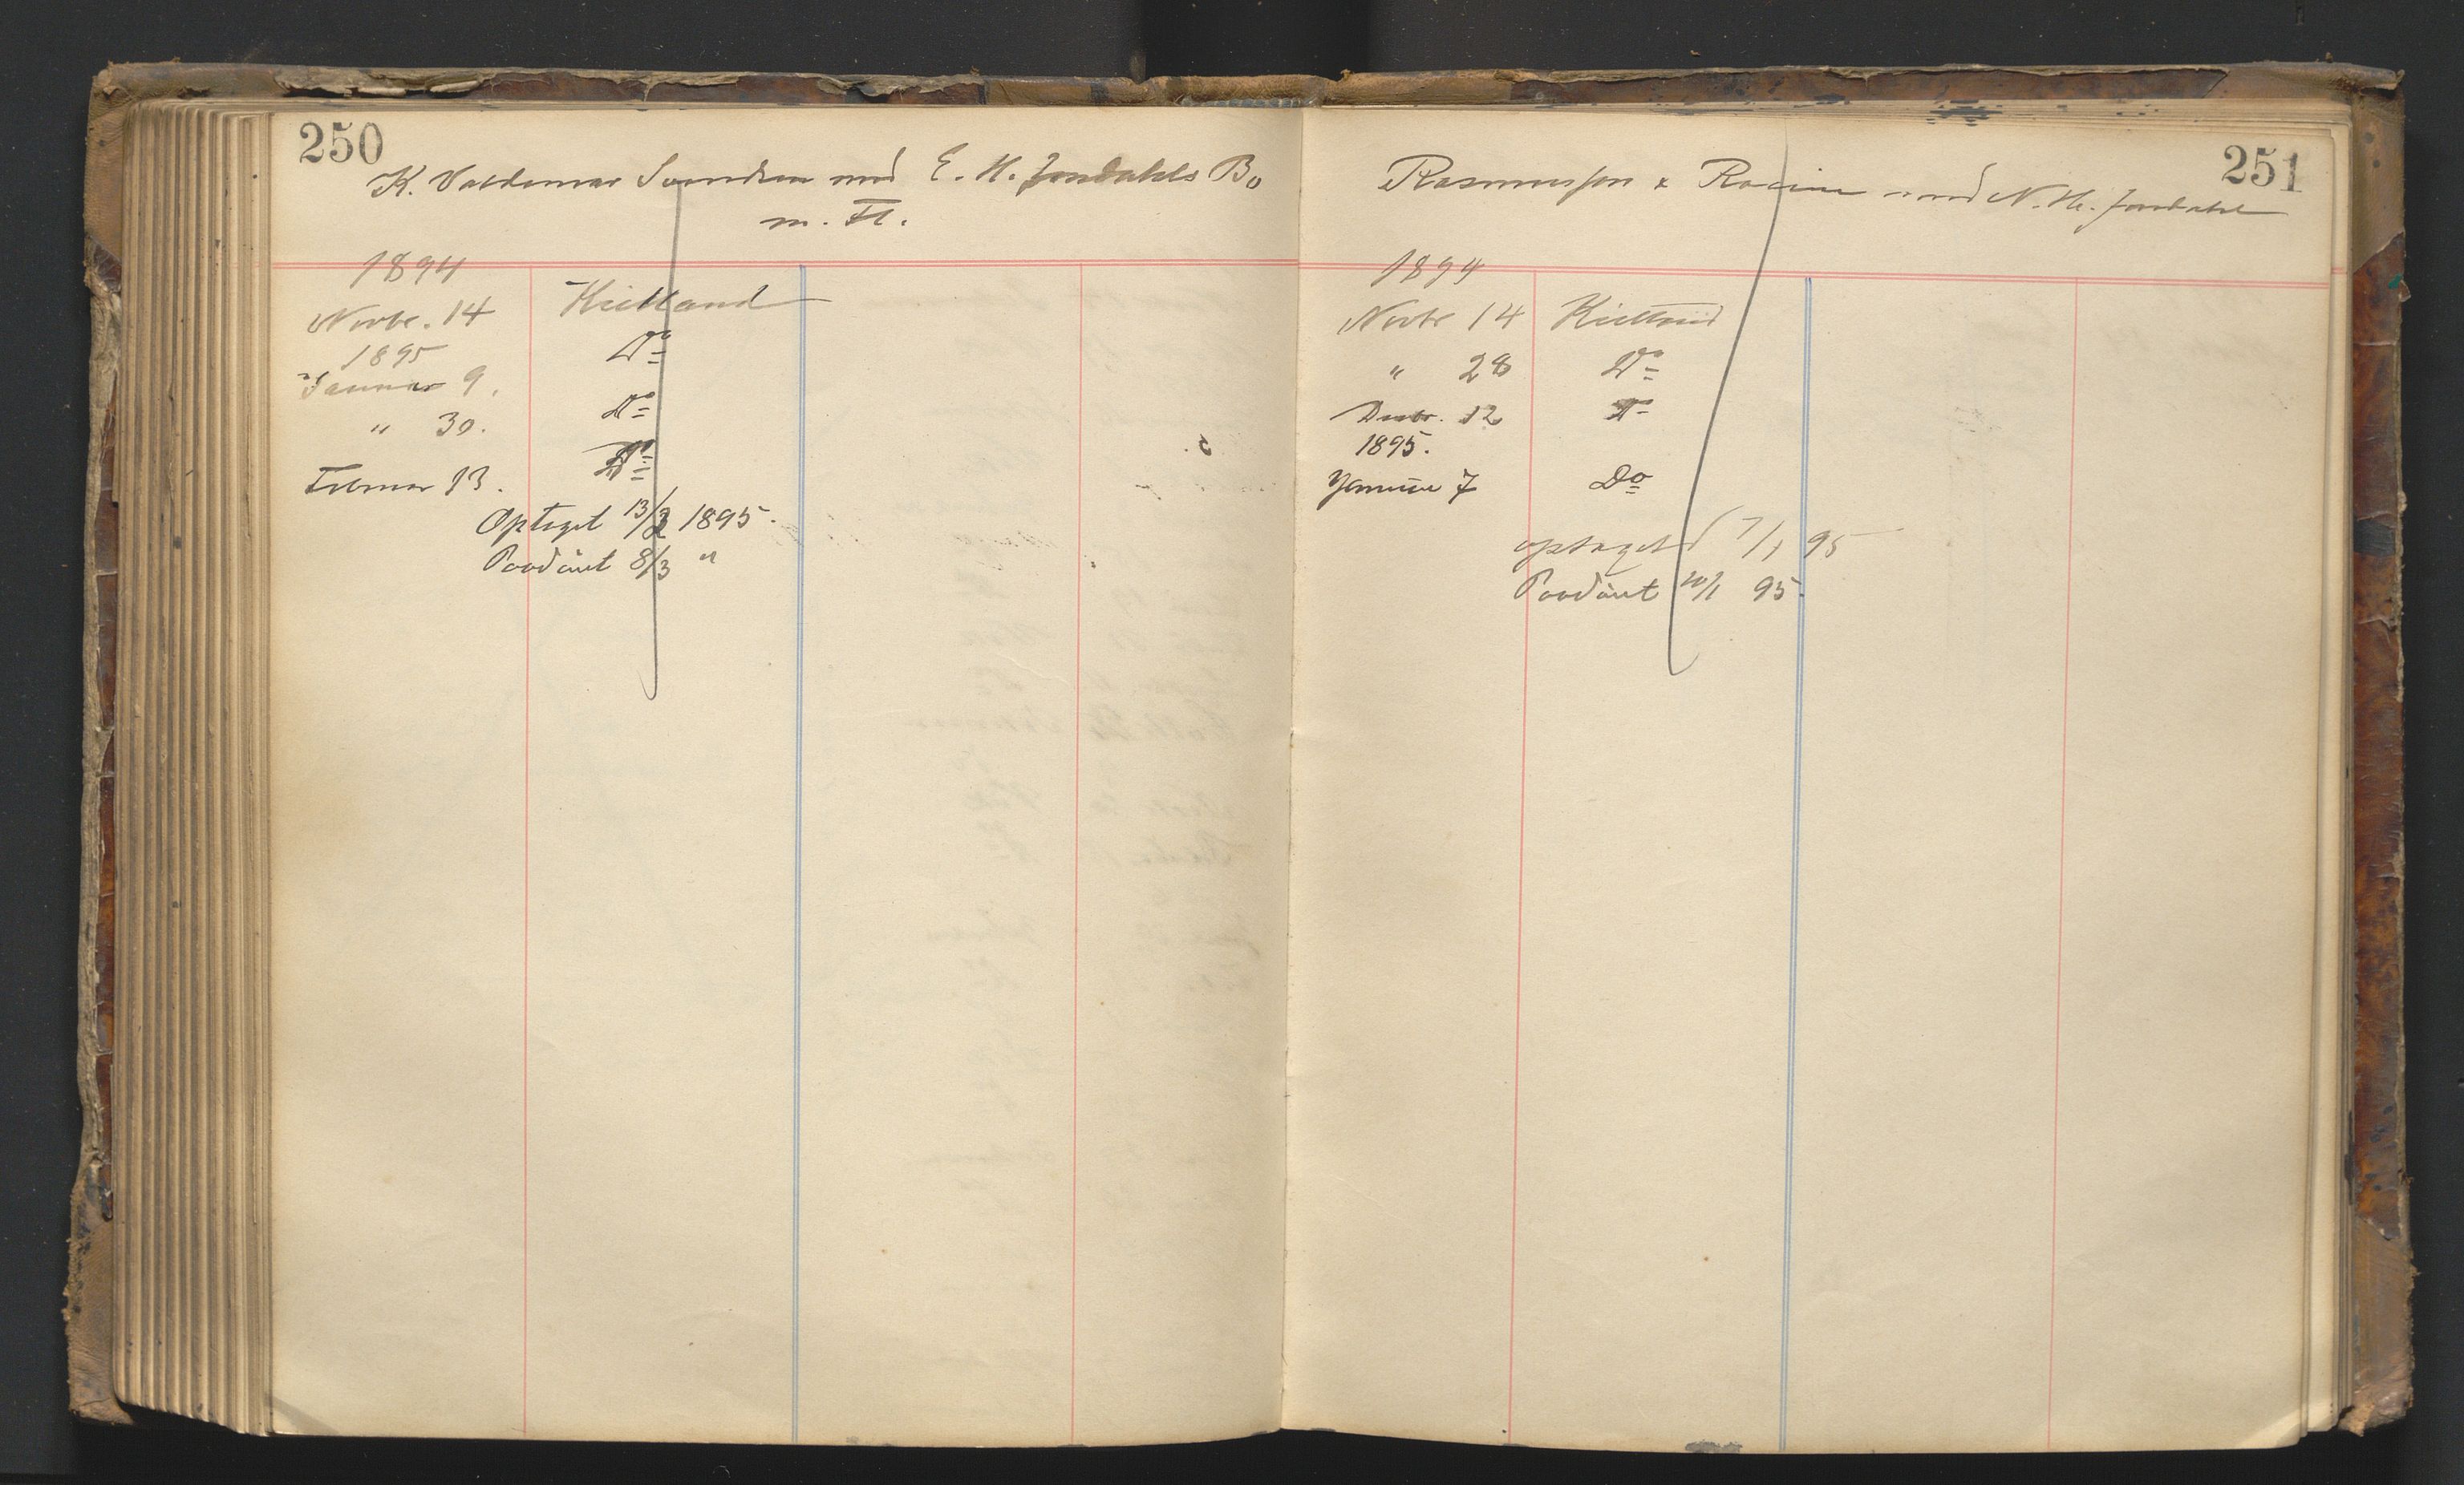 250
K. Valdemar Svendsen mod E. H. Jondahls Bo
m. Fl.
1894
Novbr. 14 Kielland
1895 Do
Januar 9. Do
" 30. Do
Februar 13.
Optaget 13/2 1895.
Paadömt 8/3 "
251
Rasmussen & Racine mod N. H. Jondahl
1894
Novbr 14 Kielland
" 28 Do
Decbr. 12 Do
1895.
Januar 7 Do
optaget 7/1 95
Paadömt 10/1 95.